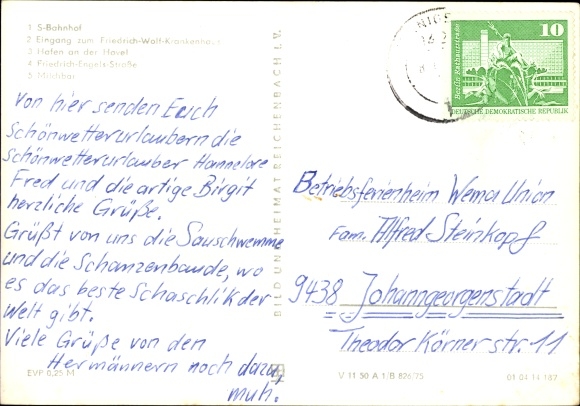 1 S-Bahnhof
2 Eingang zum Friedrich-Wolf-Krankenhaus
3 Hafen an der Havel
4 Friedrich-Engels-Straße
5 Milchbar
Von hier senden Euch
Schönwetterurlaubern die
Schönwetterurlauber Hannelore
Fred und die artige Birgit
herzliche Grüße.
Grüßt von uns die Sauschwemme
und die Schanzenbaude, wo
es das beste Schaschlik der
Welt gibt.
Viele Grüße von den
Hermännern noch dazu,
muh.
EVP 0,25 M
BILD UND HEIMAT REICHENBACH I. V.
10
Berlin, Rathausstraße
DEUTSCHE DEMOKRATISCHE REPUBLIK
Betriebsferienheim Wema Union
Fam. Alfred Steinkopf
9438 Johanngeorgenstadt
Theodor Körner str. 11
V 11 50 A 1/B 876/75
01 04 14 187